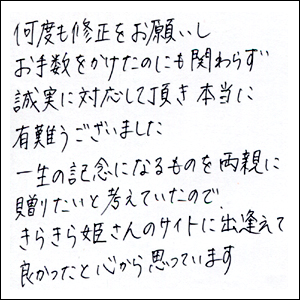 何度も修正をお願いし
お手数をかけたのにも関わらず
誠実に対応して頂き本当に
有難うございました
一生の記念になるものを両親に
贈りたいと考えていたので、
きらきら姫さんのサイトに出逢えて
良かったと心から思っています